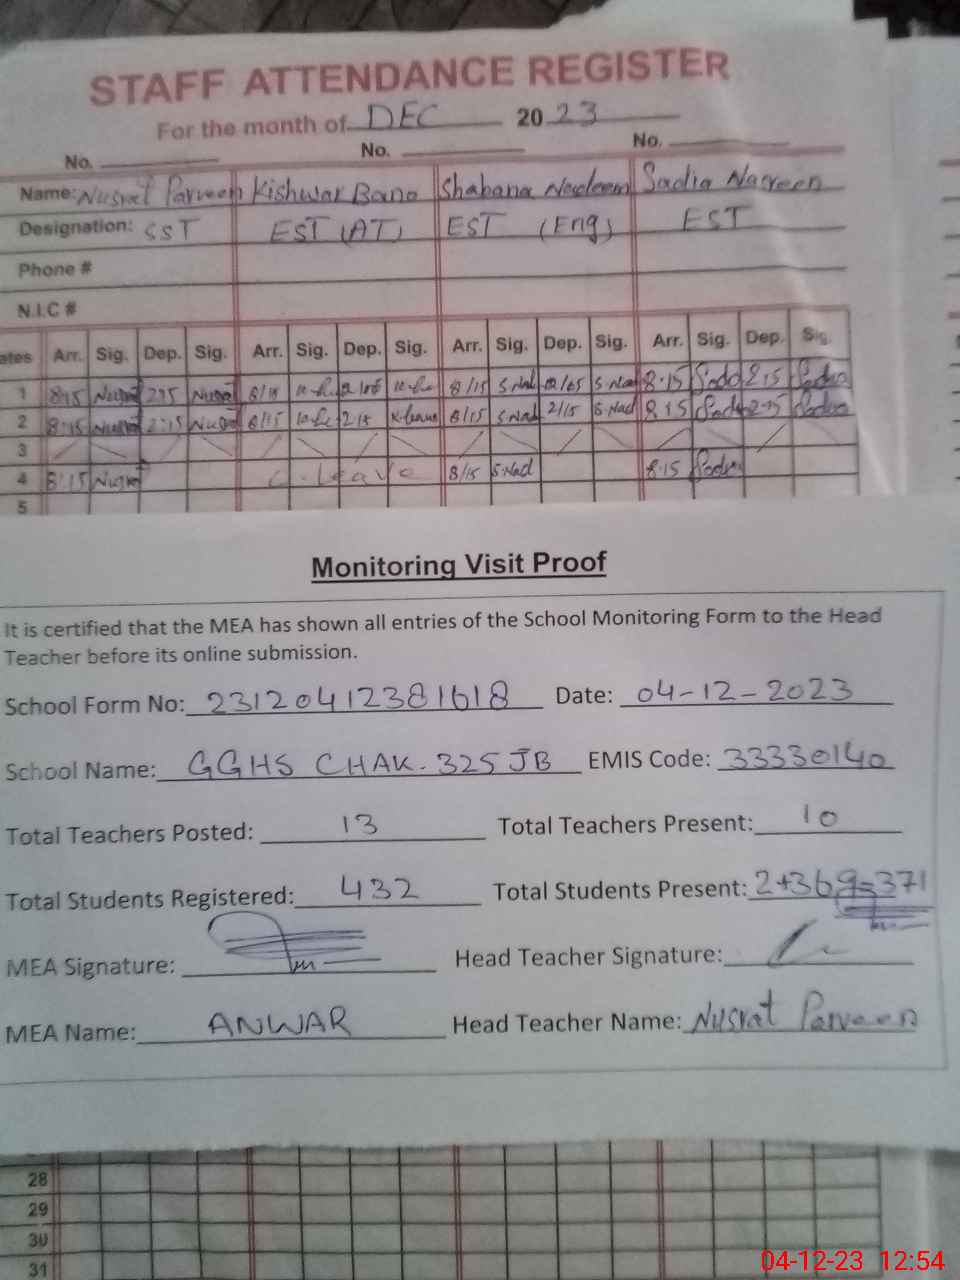 STAFF ATTENDANCE REGISTER
For the month of DEC 2023
No. No. No.
Name: Nusrat Parveen Kishwar Bano Shabana Nadeem Sadia Nasreen
Designation: SST EST (AT) EST (Eng) EST
Phone #
N.I.C #
ates Arr. Sig. Dep. Sig. Arr. Sig. Dep. Sig. Arr. Sig. Dep. Sig. Arr. Sig. Dep. Sig.
1 8:15 Nusrat Nusrat 8/15 8/15 S.Nad S.Nad 8:15 2:15
2 8:15 Nusrat 2:15 Nusrat 8/15 2/15 8/15 S.Nad 2/15 S.Nad 8:15 2:15
3
4 8:15 Nusrat C. Leave 8/15 S.Nad 8:15
5
Monitoring Visit Proof
It is certified that the MEA has shown all entries of the School Monitoring Form to the Head
Teacher before its online submission.
School Form No: 23120412381618 Date: 04-12-2023
School Name: GGHS CHAK. 325 JB EMIS Code: 33330140
Total Teachers Posted: 13 Total Teachers Present: 10
Total Students Registered: 432 Total Students Present: 2+369=371
MEA Signature: Head Teacher Signature:
MEA Name: ANWAR Head Teacher Name: Nusrat Parveen
28
29
30
31
04-12-23 12:54